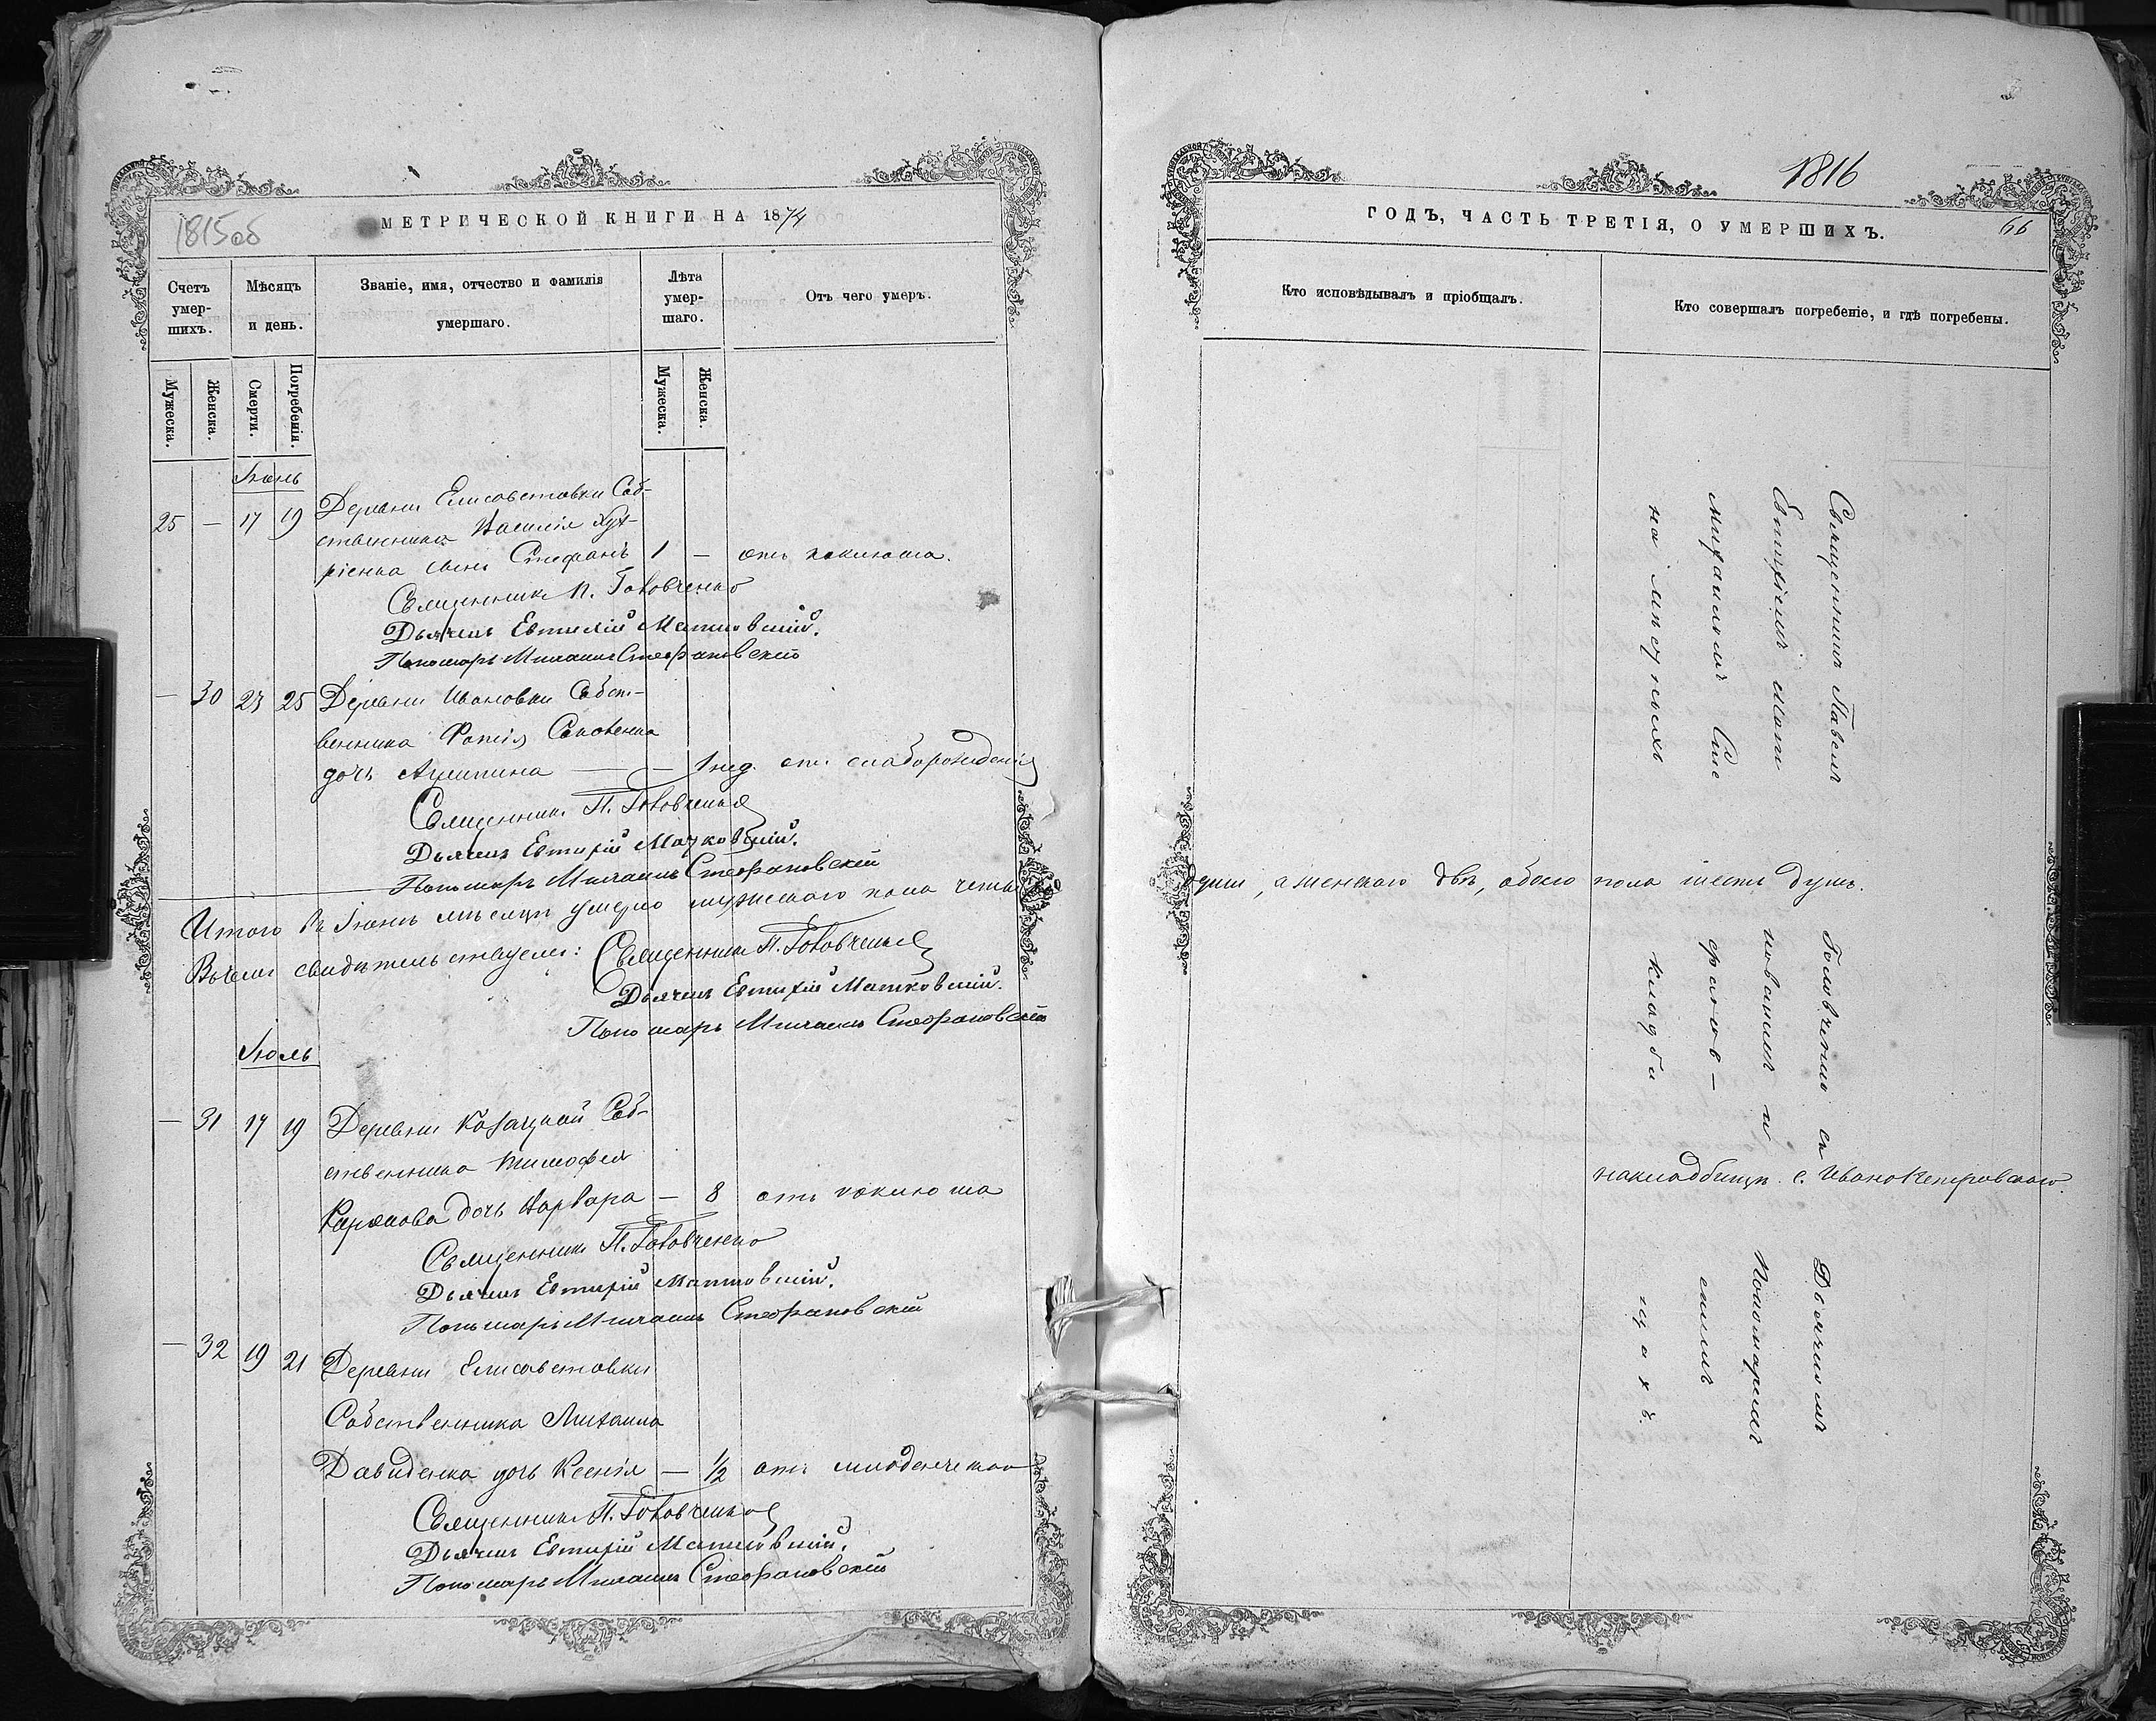 1815об
МЕТРИЧЕСКОЙ КНИГИ НА 1874
Счетъ умер-шихъ.
Мѣсяцъ и день.
Званіе, имя, отчество и фамилія умершаго.
Лѣта умер-шаго.
Отъ чего умеръ.
Мужеска.
Женска.
Смерти.
Погребенія.
Мужеска.
Женска.
Іюнь
25 — 17 19 Деревни Елисаветовки Соб-
ственника Василія
сынъ Стефанъ 1 — отъ коклюша.
Священникъ П. Головченко
Дьячекъ Евтихій Матковскій.
Пономарь Михаилъ Стефановскій
— 30 23 25 Деревни Ивановки Собст-
венника Фотія
дочь Акилина — — 1 нед. отъ слаборожденія
Священникъ П. Головченко
Дьячекъ Евтихій Матковскій.
Пономарь Михаилъ Стефановскій
Итого въ Іюнѣ мѣсяцѣ умерло мужескаго пола четыре
Въ чемъ свидѣтельствуемъ: Священникъ П. Головченко
Дьячекъ Евтихій Матковскій.
Пономарь Михаилъ Стефановскій
Іюль
— 31 17 19 Деревни Козацкой Соб-
ственника Тимофея
дочь Варвара — 8 отъ коклюша
Священникъ П. Головченко
Дьячекъ Евтихій Матковскій.
Пономарь Михаилъ Стефановскій
— 32 19 21 Деревни Елисаветовки
Собственника Михаила
Давиденка дочь Ксенія — 1/2 отъ младенческой
Священникъ П. Головченко
Дьячекъ Евтихій Матковскій.
Пономарь Михаилъ Стефановскій
1816
ГОДЪ, ЧАСТЬ ТРЕТІЯ, О УМЕРШИХЪ.
66
Кто исповѣдывалъ и пріобщалъ.
Кто совершалъ погребеніе, и гдѣ погребены.
души, а женскаго двѣ, обоего пола шесть душъ.
Священникъ Павелъ Головченко съ Дьячкомъ
Евтихіемъ Матковскимъ и Пономаремъ
Михаиломъ Стефановскимъ
на мѣстныхъ кладбищахъ.
на кладбищѣ с. Ивано Петровскаго.